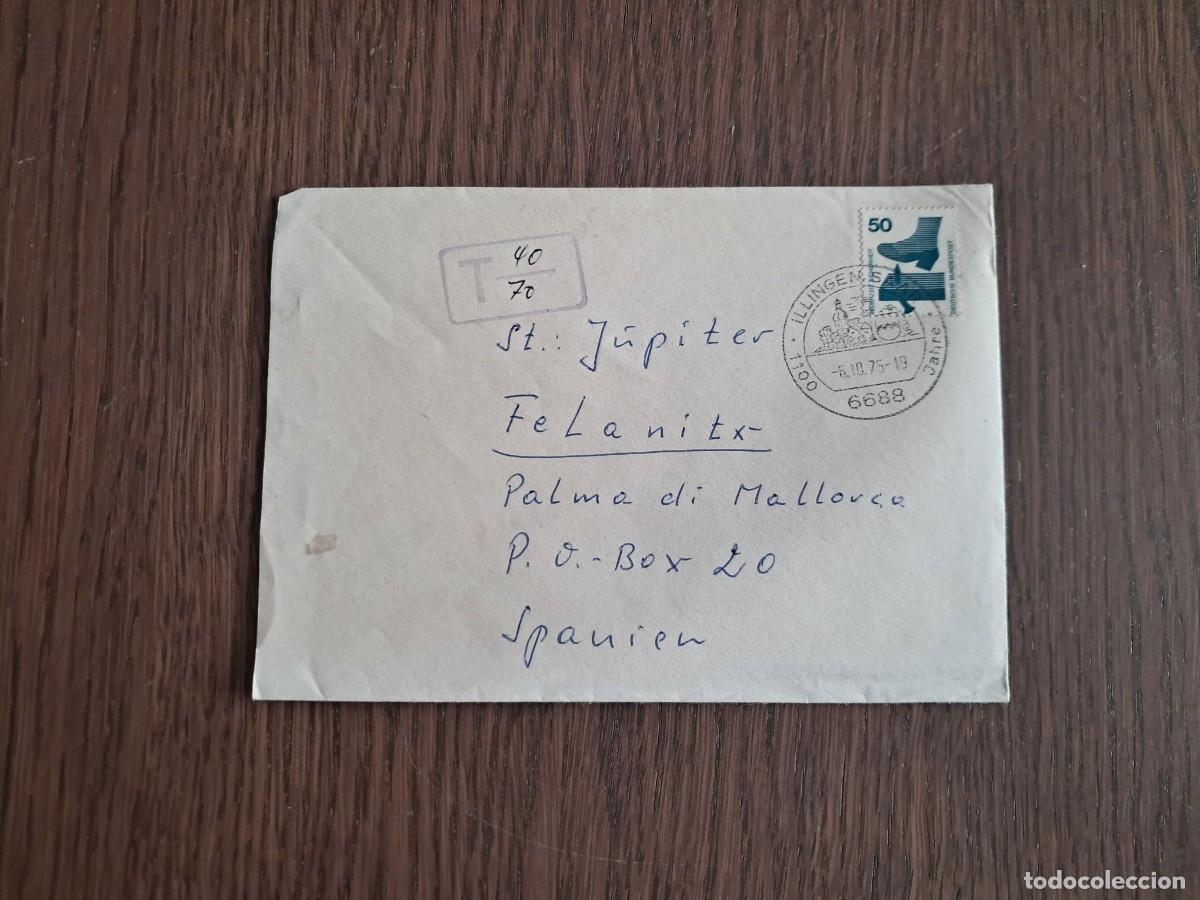 T 40
70
50
DEUTSCHE BUNDESPOST
1100 • ILLINGEN
Jahre
-6.10.75-19
6688
St.: Jüpiter
FeLanitx
Palma di Mallorca
P. O.-Box 20
Spanien
todocoleccion